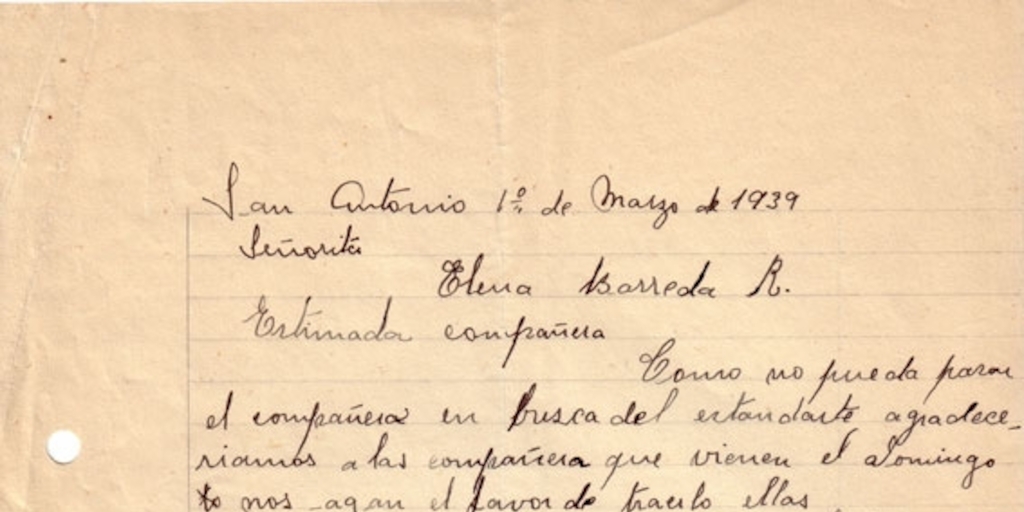 San Antonio 1º de Marzo de 1939
Señorita
Elena Barreda R.
Estimada compañera
Como no pueda pasar
el compañera en busca del estandarte agradece-
riamos a las compañera que vienen el Domingo
nos agan el favor de traerlo ellas.